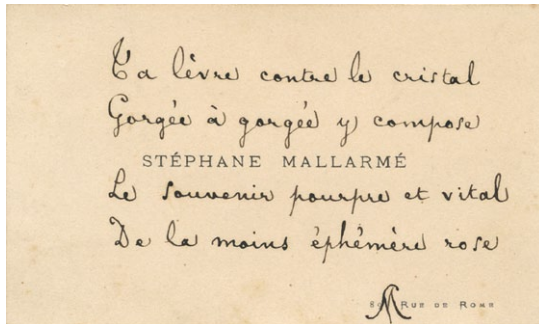 Ta lèvre contre le cristal
Gorgée à gorgée y compose
STÉPHANE MALLARMÉ
Le souvenir pourpre et vital
De la moins éphémère rose
RUE DE ROME